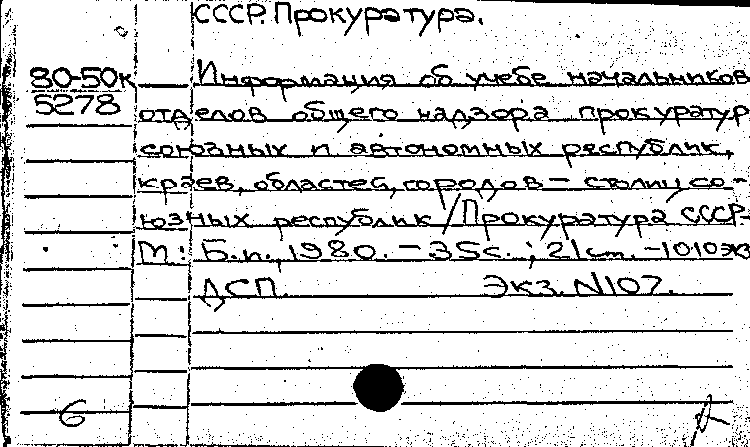 СССР. Прокуратура.
80-50к
5278
Информация об учебе начальников
отделов общего надзора прокуратур
союзных и автономных республик,
краев, областей, городов – столиц со-
юзных республик / Прокуратура СССР.-
М: Б.и., 1980. – 35с. ; 21см. –1010экз
ДСП. Экз. N107.
6